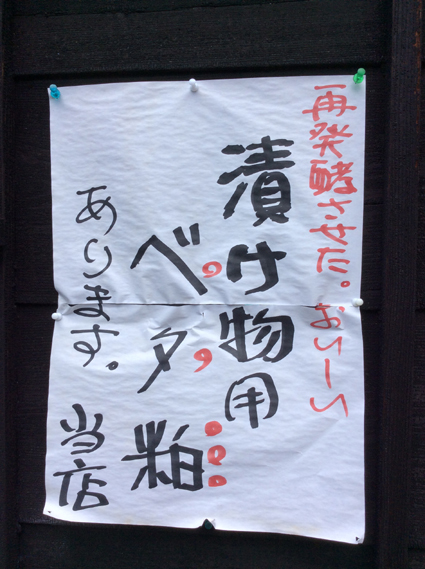 再発酵させた。おいーしい
漬け物用
ベタ粕
あります。当店